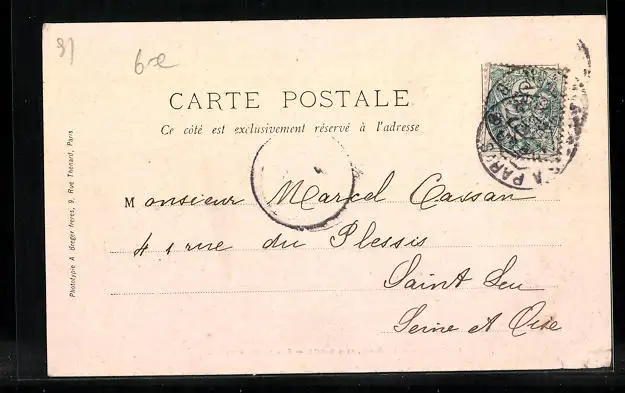 31
6 re
CARTE POSTALE
Ce côté est exclusivement réservé à l'adresse
Monsieur Marcel Cassan
41 rue du Plessis
Saint Leu
Seine et Oise
Phototypie A Breger frères, 9, Rue Thénard, Paris
PARIS